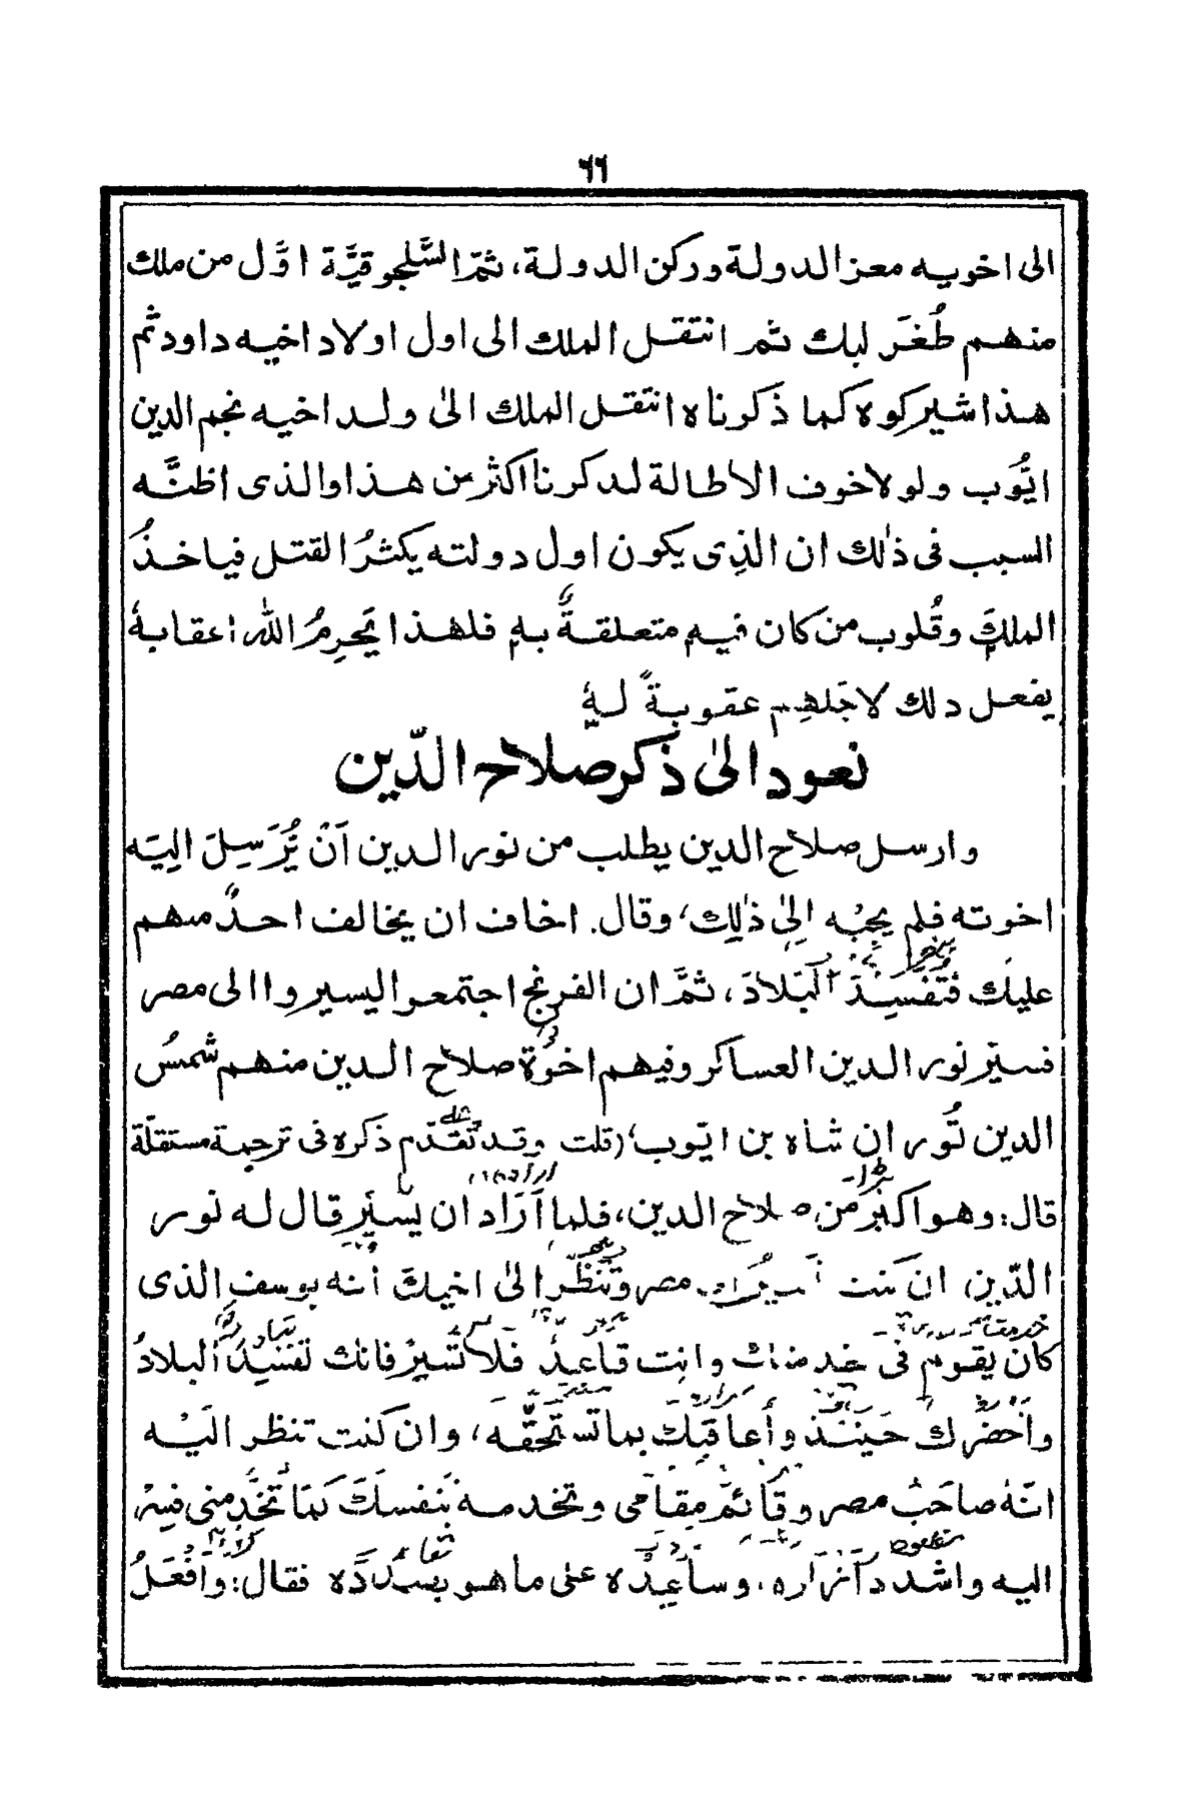 ٦٦
الى اخويه معز الدولة وركن الدولة، ثمّ السَّلجوقيَّة اوَّل من ملك
منهم طُغَر لبك ثم انتقل الملك الى اول اولاد اخيه داود ثم
هذا شيركوه كما ذكرناه انتقل الملك الىٰ ولد اخيه نجم الدين
ايُّوب ولولا خوف الاطالة لدكرنا اكثر من هذا والذى اظنَّه
السبب فى ذٰلك ان الذِى يكون اول دولته يكثرُ القتل فياخذُ
الملكَ وقُلوب من كان فيه متعلقةٌ به فلهذا يَحرِمُ اللّٰه اعقابهٗ
يفعل دلك لاجَلهِم عقوبةً لهٗ
نعود الىٰ ذكر صلاح الدّين
وارسل صلاح الدين يطلب من نور الدين اَنْ يُّرَسِلَ اليَه
اخوته فلم يجبْه الِىٰ ذٰلِك، وقال. اخاف ان يخالف احدٌ منهم
عليك فتَفسِدَ البَلادَ، ثمَّ ان الفرنج اجتمعوا ليسيروا الى مصر
فسيّر نور الدين العساكر وفيهم اخوَة صلاح الدين منهم شمسُ
الدين تُوران شاه بن ايّوب، (قلت وقد تَقَدّم ذكره فى ترجمة مستقلّة
قال: وهو اكبَر من صلاح الدين، فلما اَرَاد ان يسيّر قال له نور
الدّين ان كنت تسيرُ الى مصر وتَنْظُر الىٰ اخيكَ انه يوسف الذى
كان يقوم فى خدمتك وانت قاعِدٌ فَلا تَسِيرْ فانك تفسِدُ البلادُ
واُحضِرك حَينَئذ وأعاقبك بما تستَحقّه، وان كنت تنظر اليْه
انّهٗ صاحبُ مصر وقائمٌ مقامى وتخدمه بنَفسكَ كمَا تَخدمنى فسِرْ
اليه واشدد اَزْرَاره، وساعِدْه على ما هو بصدَدَه فقال: وَافْعَلُ